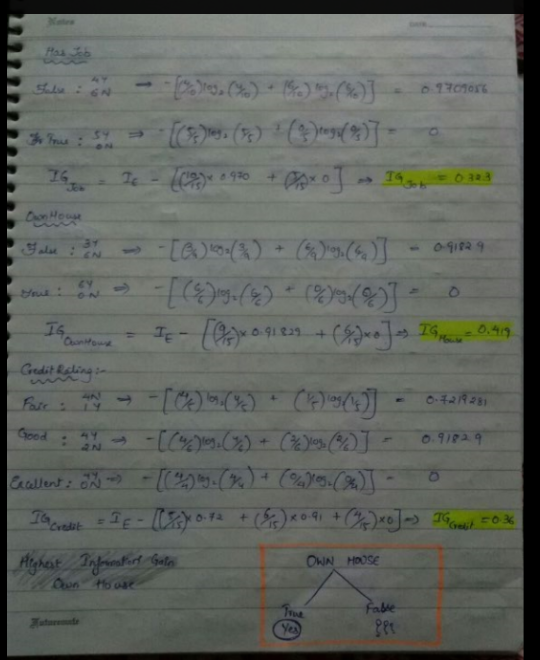 Notes
Has Job
False : 4Y 6N → -[(4/10)log₂(4/10) + (6/10)log₂(6/10)] = 0.9709056
True : 5Y 0N ⇒ -[(5/5)log₂(5/5) + (0/5)log₂(0/5)] = 0
IG Job = I_E - [(10/15)×0.970 + (5/15)×0] ⇒ IG Job = 0.323
Own House
False : 3Y 6N ⇒ -[(3/9)log₂(3/9) + (6/9)log₂(6/9)] = 0.91829
True : 6Y 0N ⇒ -[(6/6)log₂(6/6) + (0/6)log₂(0/6)] = 0
IG OwnHouse = I_E - [(9/15)×0.91829 + (6/15)×0] ⇒ IG House = 0.419
Credit Rating:-
Fair : 4N 1Y → -[(4/5)log₂(4/5) + (1/5)log(1/5)] = 0.7219281
Good : 4Y 2N ⇒ -[(4/6)log₂(4/6) + (2/6)log₂(2/6)] = 0.91829
Excellent : 4Y 0N ⇒ -[(4/4)log₂(4/4) + (0/4)log₂(0/4)] = 0
IG Credit = I_E - [(5/15)×0.72 + (6/15)×0.91 + (4/15)×0] ⇒ IG Credit = 0.36
Highest Information Gain
Own House
OWN HOUSE
True False
Yes ???